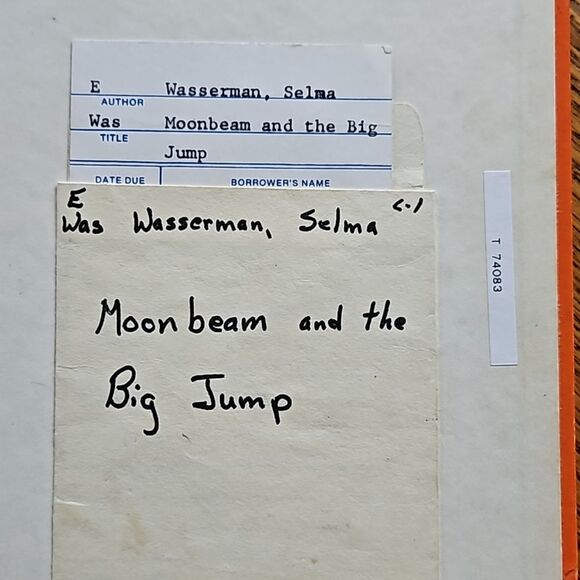 E Wasserman, Selma
AUTHOR
Was Moonbeam and the Big
TITLE
Jump
DATE DUE BORROWER'S NAME
E
Was Wasserman, Selma c.1
Moonbeam and the
Big Jump
T 74083